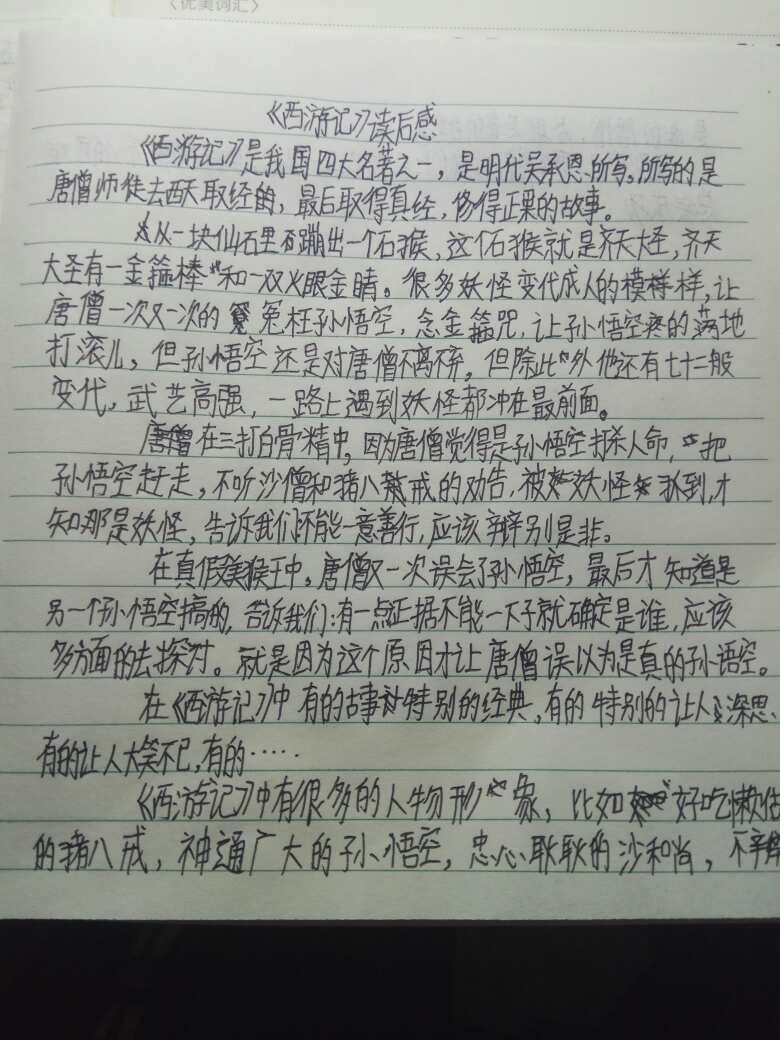 〈优美词汇〉
《西游记》读后感
《西游记》是我国四大名著之一，是明代吴承恩所写。所写的是
唐僧师徒去西天取经的，最后取得真经，修得正果的故事。
从一块仙石里蹦出一个石猴，这个石猴就是齐天大圣，齐天
大圣有一金箍棒和一双火眼金睛。很多妖怪变代成人的模样，让
唐僧一次又一次的冤枉孙悟空，念金箍咒，让孙悟空疼的满地
打滚儿，但孙悟空还是对唐僧不离不弃，但除此外他还有七十二般
变代，武艺高强，一路上遇到妖怪都冲在最前面。
在三打白骨精中，因为唐僧觉得是孙悟空打杀人命，把
孙悟空赶走，不听沙僧和猪八戒的劝告，被妖怪抓到，才
知那是妖怪，告诉我们不能一意善行，应该辩别是非。
在真假美猴王中，唐僧又一次误会了孙悟空，最后才知道是
另一个孙悟空搞的，告诉我们：有一点正据不能一下子就确定是谁，应该
多方面的去探讨。就是因为这个原因才让唐僧误以为是真的孙悟空。
在《西游记》中有的古事特别的经典，有的特别的让人深思，
有的让人大笑不已，有的……
《西游记》中有很多的人物形象，比如好吃懒做
的猪八戒，神通广大的孙悟空，忠心耿耿的沙和尚，不辞